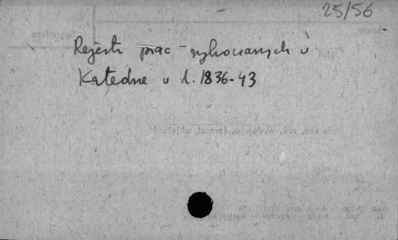 25/56
Rejestr prac wykonanych w
Katedrze w l. 1836-43